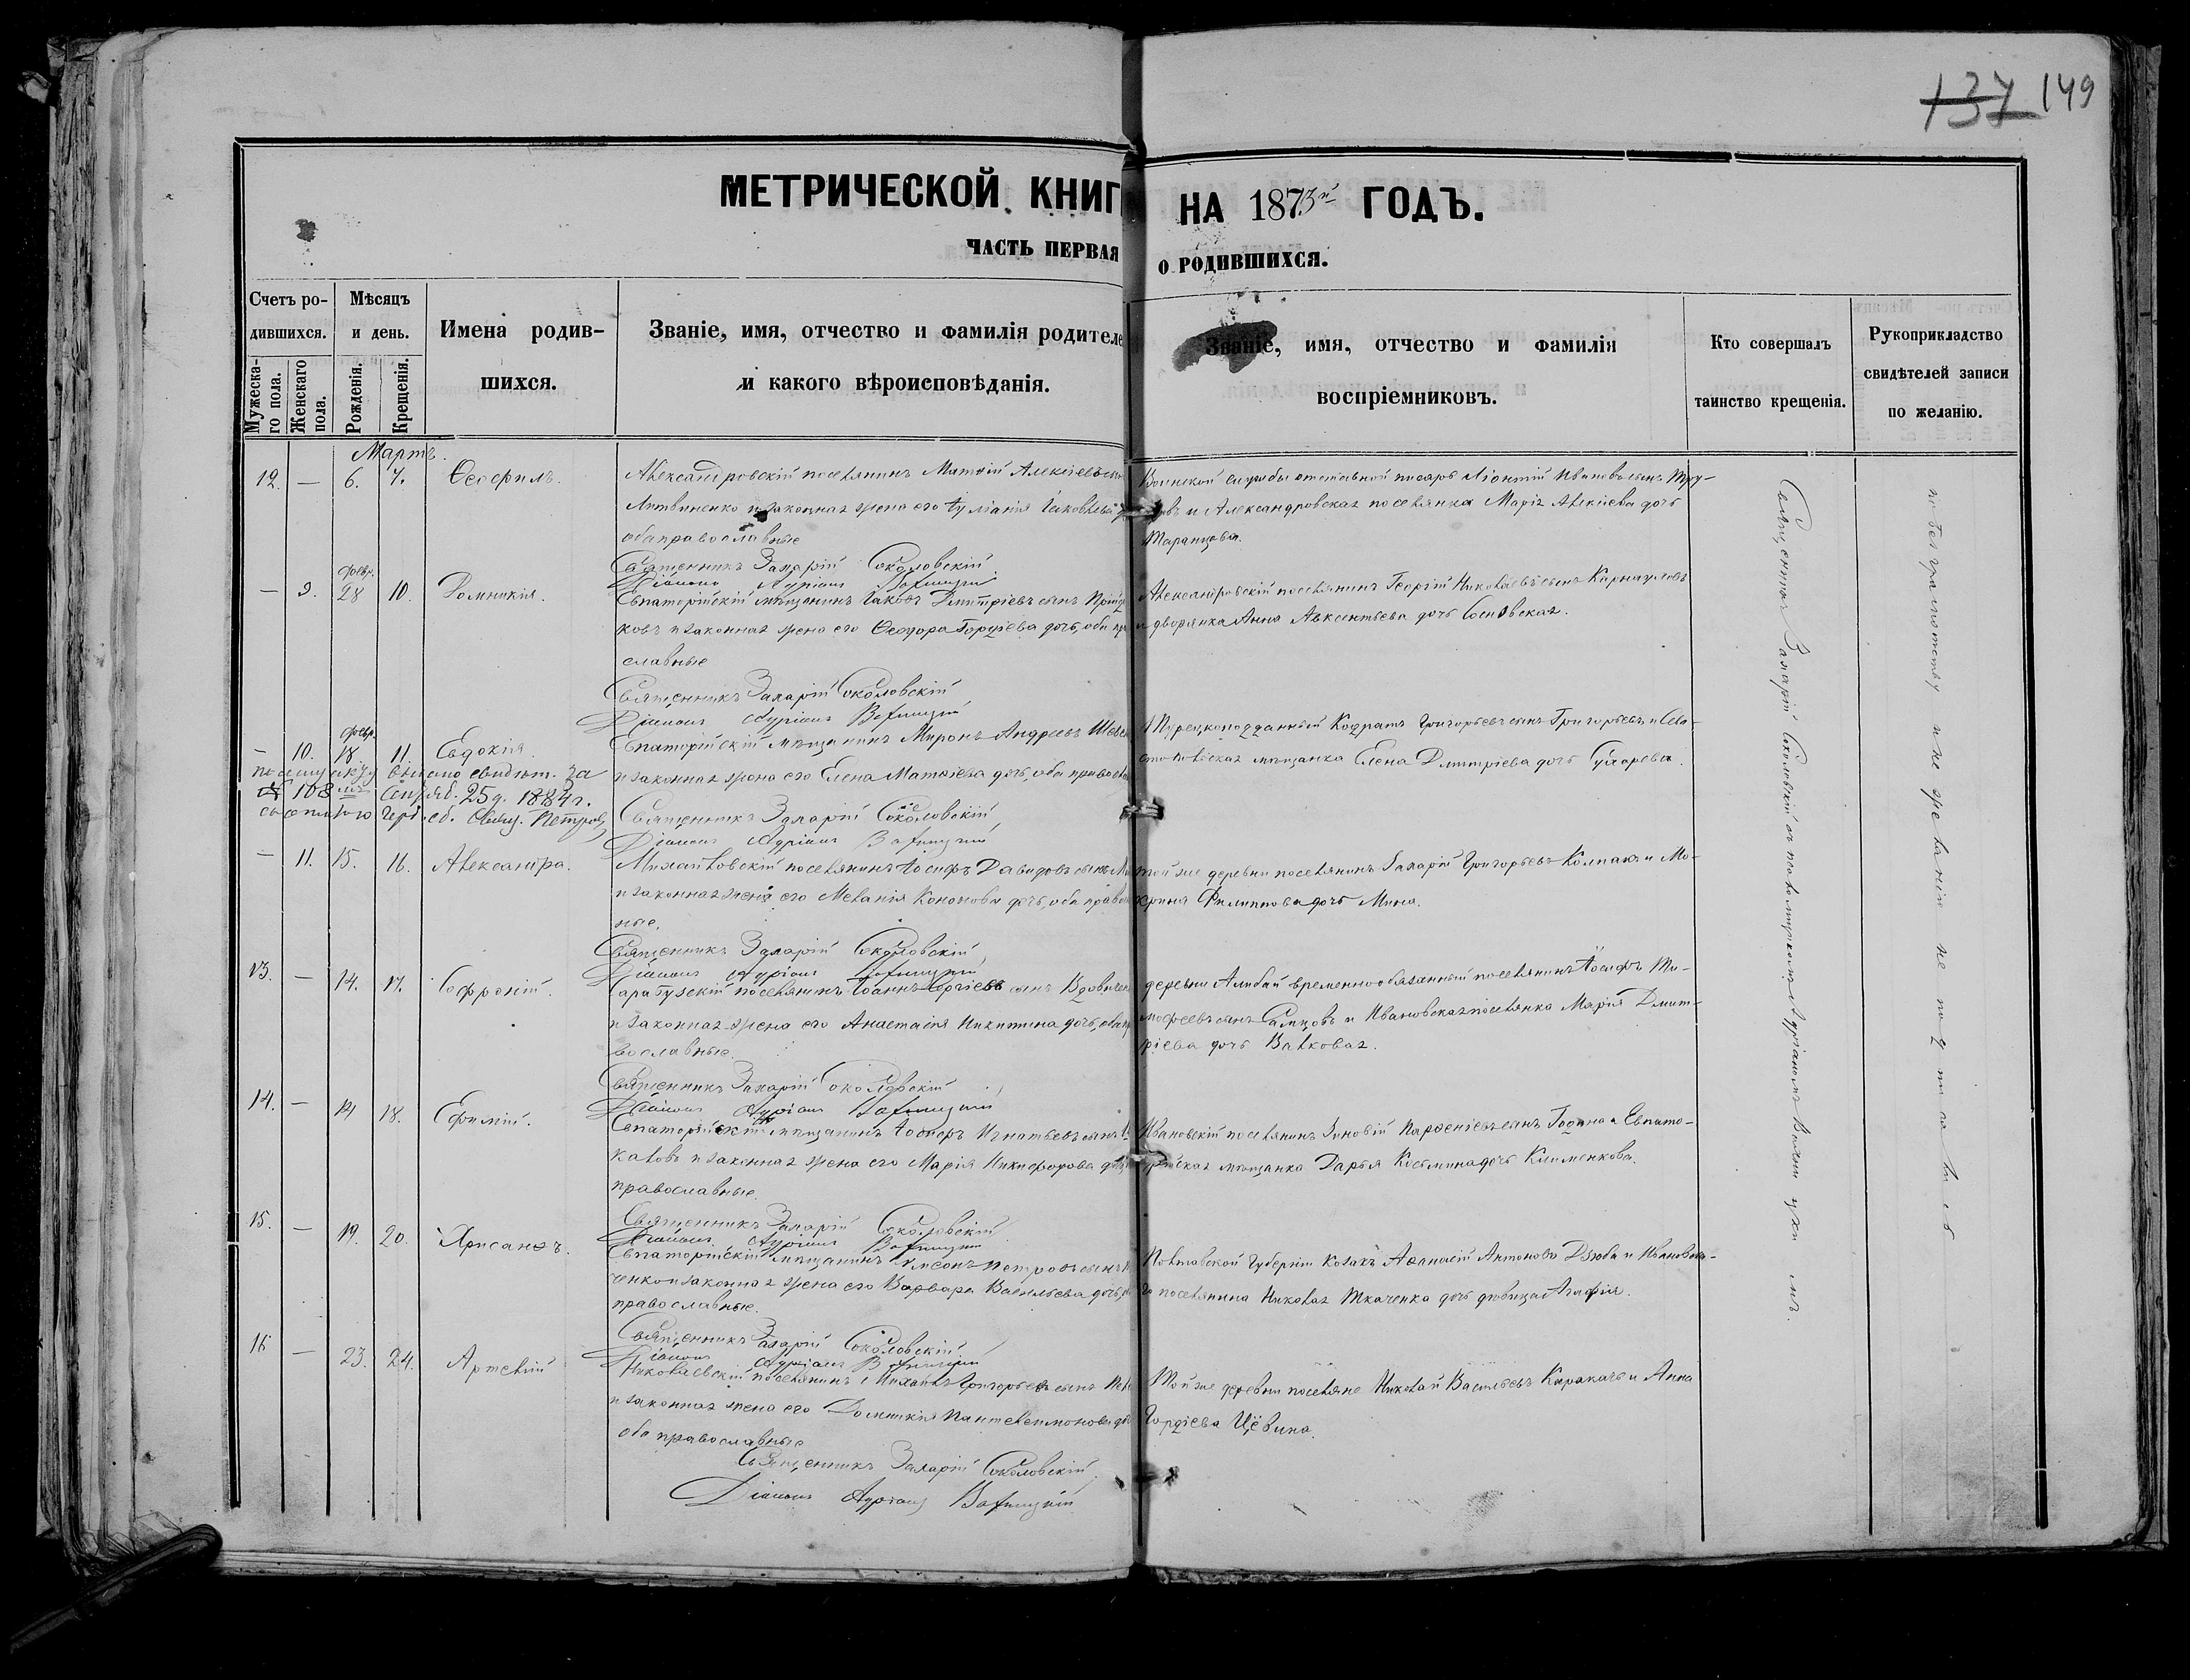 137 149
МЕТРИЧЕСКОЙ КНИГ НА 1873й ГОДЪ.
ЧАСТЬ ПЕРВАЯ О РОДИВШИХСЯ.
Счетъ ро-
дившихся.
Мужеска-
го пола.
Женскаго
пола.
Мѣсяцъ
и день.
Рожденія.
Крещенія.
Имена родив-
шихся.
Званіе, имя, отчество и фамилія родителе
и какого вѣроисповѣданія.
Званіе, имя, отчество и фамилія
воспріемниковъ.
Кто совершалъ
таинство крещенія.
Рукоприкладство
свидѣтелей записи
по желанію.
Мартъ.
12. — 6. 7. Ѳеофилъ.
Александровскій поселянинъ Матѳій Алексіевъ
Литвиненко и законная жена его Іуліанія Іаковлева
оба православные
Священникъ Захарій Соколовскій
Діаконъ Адріанъ
Воинской службы отставной писарь Ліонтій Ивановъ сынъ Тру-
овъ и Александровская поселянка Марія Алексіева дочь
Таранцова.
— 9. Февр. 28 10. Домникія.
Евпаторійскій мѣщанинъ Іаковъ Дмитріевъ сынъ
ковъ и законная жена его Ѳеодора Гордіева дочь, оба пра
славные
Священникъ Захарій Соколовскій
Діаконъ Адріанъ
Александровскій поселянинъ Георгій Николаевъ сынъ Карнауховъ
и дворянка Анна Авксентьева дочь Сосновская.
— 10. Февр. 18 11. Евдокія
Евпаторійскій мѣщанинъ Миронъ Андреевъ
и законная жена его Елена Матѳіева дочь, оба правосла
Священникъ Захарій Соколовскій
Діаконъ Адріанъ
по сему акту выдано свидѣт. за
№ 108 Сентяб. 25 д. 1884 г.
Турецкоподданный Кодратъ Григорьевъ сынъ Григорьевъ и Сева-
стопольская мѣщанка Елена Дмитріева дочь Сухарева.
— 11. 15. 16. Александра.
Михайловскій поселянинъ Іосифъ Давидовъ сынъ
и законная жена его Меланія Кононова дочь, оба правосла
ные,
Священникъ Захарій Соколовскій
Діаконъ Адріанъ
той же деревни поселянинъ Захарій Григорьевъ Колпакъ и Ма-
крина Филиппова дочь Мина.
13. — 14. 17. Софроній.
Сарабузскій поселянинъ Іоаннъ Сергіевъ сынъ Вдовичен
и законная жена его Анастасія Никитина дочь, оба пра
вославные.
Священникъ Захарій Соколовскій
Діаконъ Адріанъ
деревни Алибай временнообязанный поселянинъ Іосифъ Ти-
моѳеевъ сынъ Самцовъ и Ивановская поселянка Марія Дмит-
ріева дочь Валковая.
14. — 14 18. Ефимій.
Евпаторійскій мѣщанинъ Ѳеодоръ Игнатьевъ сынъ
каловъ и законная жена его Марія Никифорова дочь
православные.
Священникъ Захарій Соколовскій
Діаконъ Адріанъ
Ивановскій поселянинъ Зиновій Парѳеніевъ сынъ Година и Евпато-
рійская мѣщанка Дарья Косьмина дочь Клименкова.
15. — 19. 20. Хрисанѳъ.
Евпаторійскій мѣщанинъ Симеонъ Петровъ сынъ
ченко и законная жена его Варвара Васильева дочь,
православные.
Священникъ Захарій Соколовскій
Діаконъ Адріанъ
Полтавской Губерніи козакъ Аѳанасій Антоновъ Дзюба и Ивановска-
го поселянина Николая Ткаченка дочь дѣвица Агафія.
16 — 23. 24. Артемій
Николаевскій поселянинъ Михаилъ Григорьевъ сынъ
и законная жена его Домникія Пантелеимонова дочь
оба православные
Священникъ Захарій Соколовскій
Діаконъ Адріанъ
Той же деревни поселяне Николай Васильевъ Каракачъ и Анна
Гордіева Цёвина.
Священникъ Захарій Соколовскій съ псаломщикомъ Адріаномъ
по безграмотству и не желанію не подписались